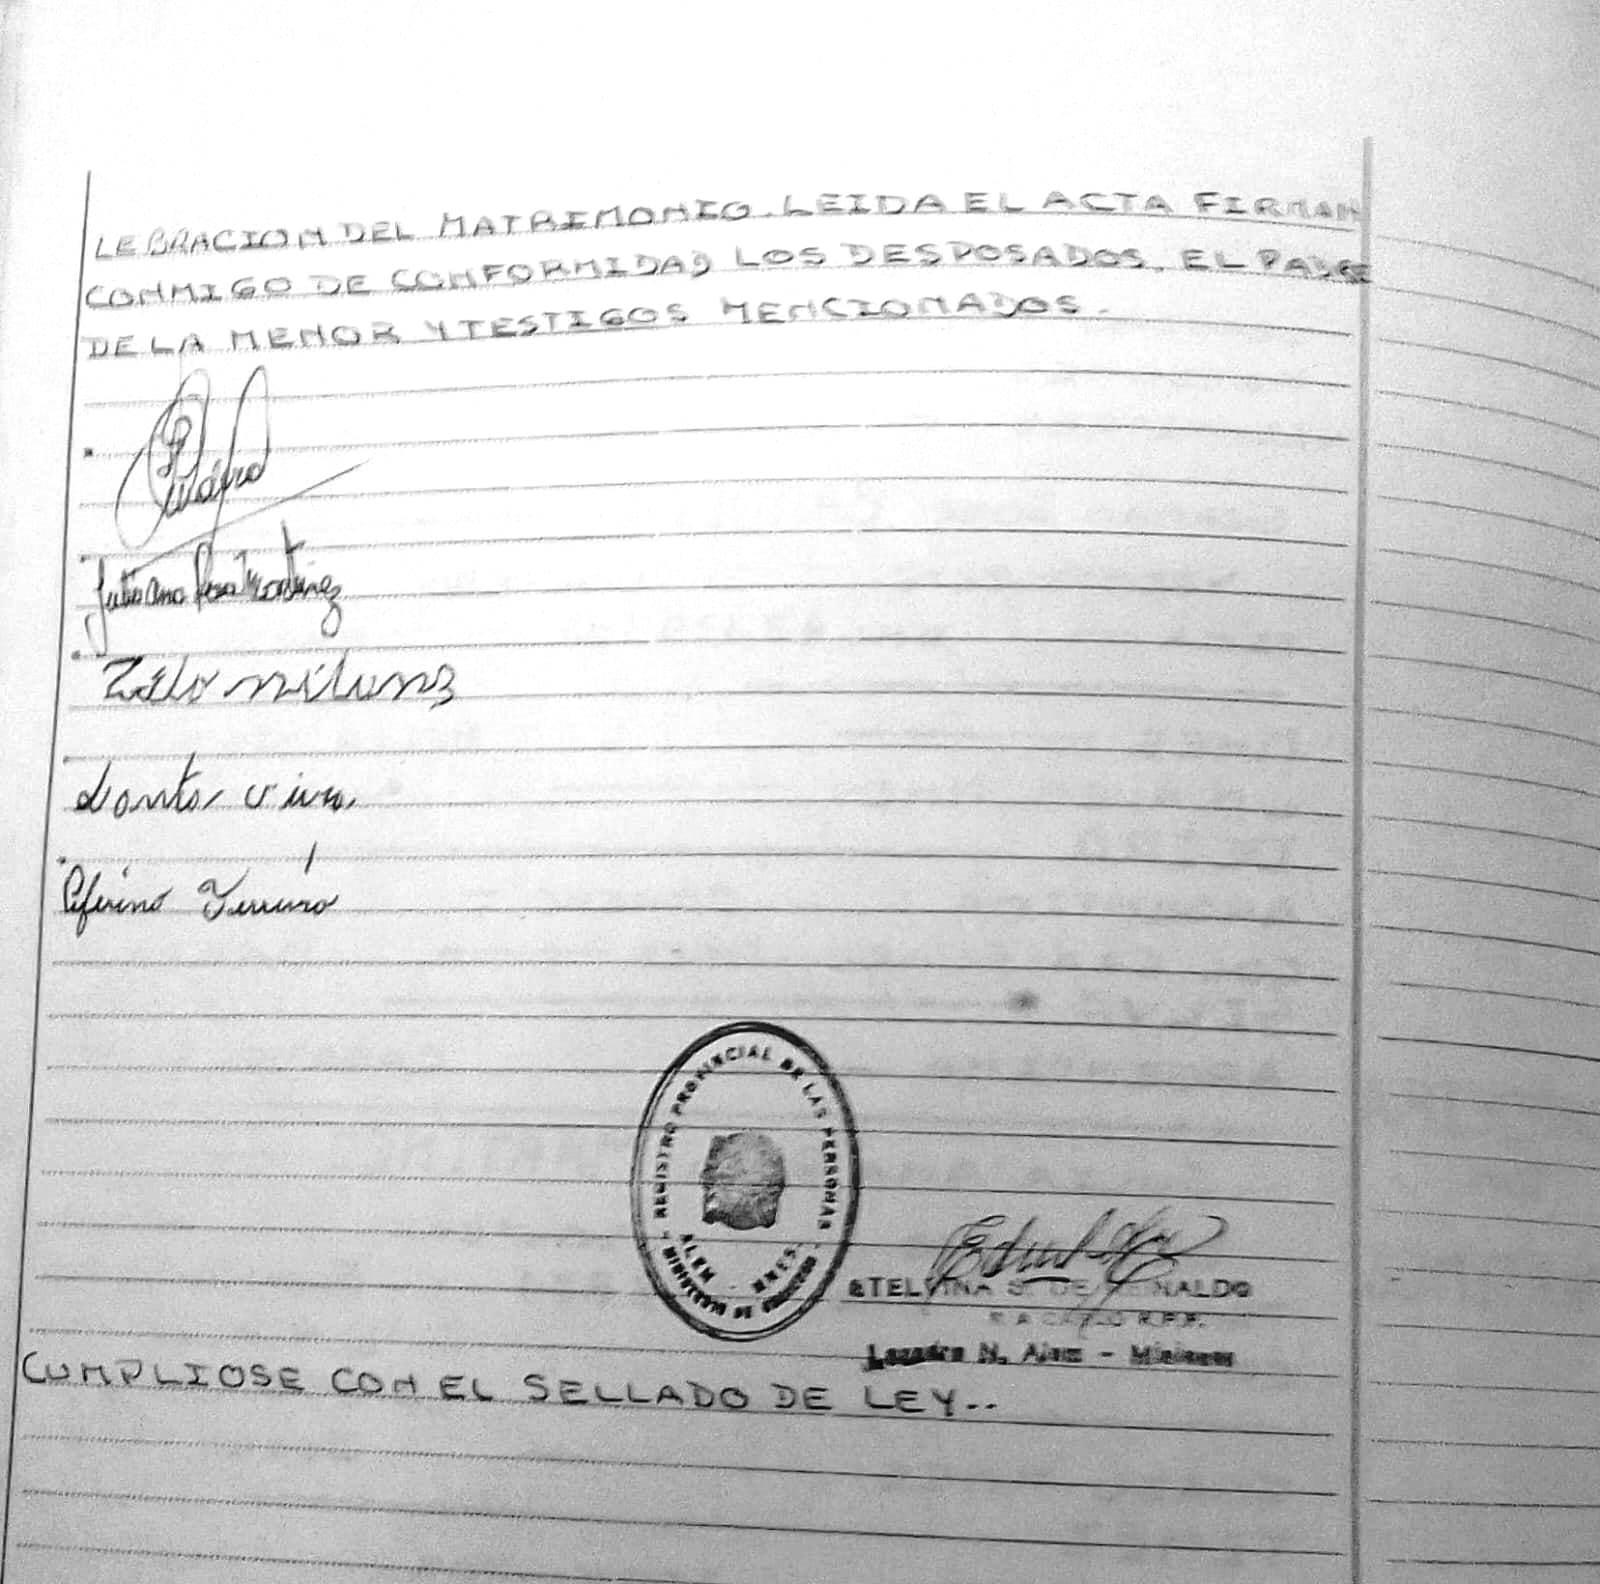 LEBRACION DEL MATRIMONIO. LEIDA EL ACTA FIRMAN
CONMIGO DE CONFORMIDAD LOS DESPOSADOS, EL PADRE
DE LA MENOR Y TESTIGOS MENCIONADOS.
Juliana Rosa Martinez
Ceferino Ferreira
REGISTRO PROVINCIAL DE LAS PERSONAS
ALEM - MNES.
MINISTERIO DE GOBIERNO
ETELVINA S. DE REINALDO
Leandro N. Alem - Misiones
CUMPLIOSE CON EL SELLADO DE LEY..